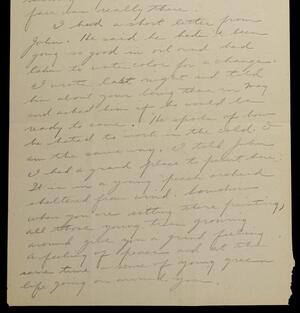 fare was really there.
I had a short letter from
John. He said he hadn't been
going so good in oil and had
taken to watercolor for a change.
I wrote last night and told
him about your being there in May
and asked him if he would be
ready to come. He spoke of how
he hated to work in the cold. I
am the same way. I told John
I had a grand place to paint here.
It is in a young pear orchard
sheltered from wind. Sometimes
when you are sitting there painting,
all those young trees growing
around give you a grand feeling
a feeling of peace and at the
same time a sense of young green
life going on around you.